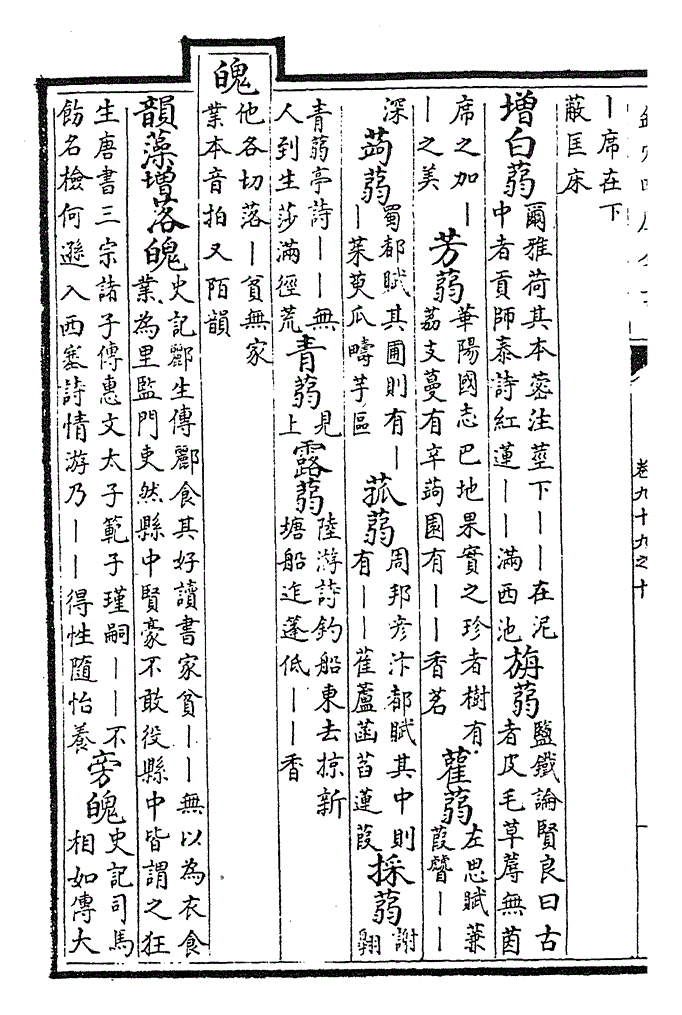 丨席在下
蔽匡床
增白蒻
爾雅荷其本蔤注莖下丨丨丨在泥
中者貢師泰詩紅蓮丨丨滿西池
旃蒻
鹽鐵論賢良曰古
者皮毛草蓐無茵
席之加丨
丨之美
芳蒻
華陽國志巴地果實之珍者樹有
荔支蔓有辛蒟園有丨丨香茗
雚蒻
左思賦蒹
葭贙丨丨
深
蒟蒻
蜀都賦其圃則有丨
丨茱萸瓜疇芋區
菰蒻
周邦彦汴都賦其中則
有丨丨萑蘆菡萏蓮葭
採蒻
謝
翱
青蒻亭詩丨丨無
人到生莎滿徑荒
青蒻
見
上
露蒻
陸游詩釣船東去掠新
塘船迮蓬低丨丨香
魄
他各切落丨貧無家
業本音拍又陌韻
韻藻增落魄
史記酈生傳酈食其好讀書家貧丨丨無以為衣食
業為里監門吏然縣中賢豪不敢役縣中皆謂之狂
生唐書三宗諸子傳惠文太子範子瑾嗣丨丨不
飭名檢何遜入西塞詩情游乃丨丨得性隨怡養
旁魄
史記司馬
相如傳大
卷九十九之十